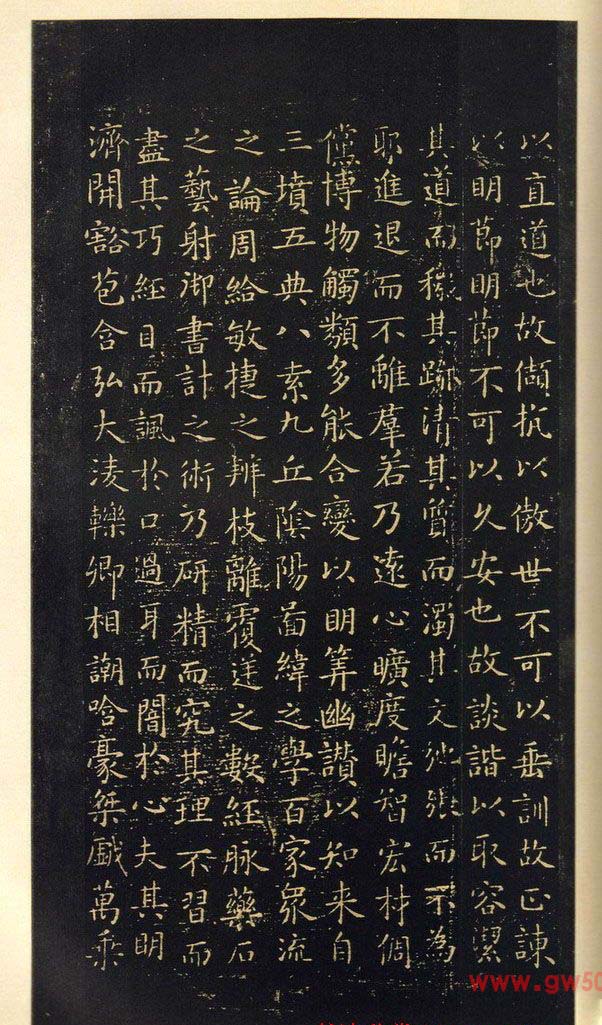 以直道也故抗以傲世不可以垂訓故正諫
以明節明節不可以久安也故談諧以取容潔
其道而穢其跡清其質而濁其文弛張而不為
耶進退而不離羣若乃遠心曠度瞻智宏材倜
儻博物觸類多能合變以明筭幽讚以知来自
三墳五典八素九丘陰陽啚緯之學百家衆流
之論周給敏捷之辨枝離覆逆之數経脉藥石
之藝射御書計之術乃研精而究其理不習而
盡其巧経目而諷於口過耳而闇於心夫其明
濟開豁苞含弘大淩轢卿相謿哈豪桀戲萬乗
www.gw50